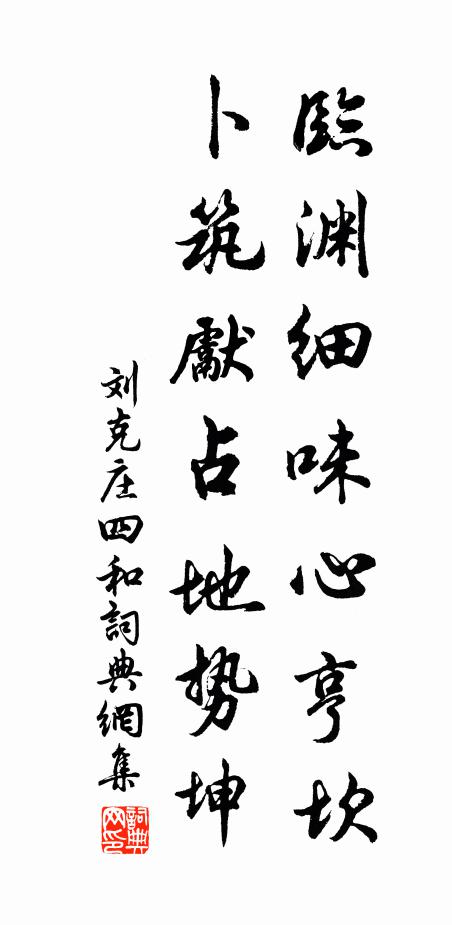 臨渊细味心亨坎
卜筑獻占地势坤
刘克庄四和詞典網集
詞典网印